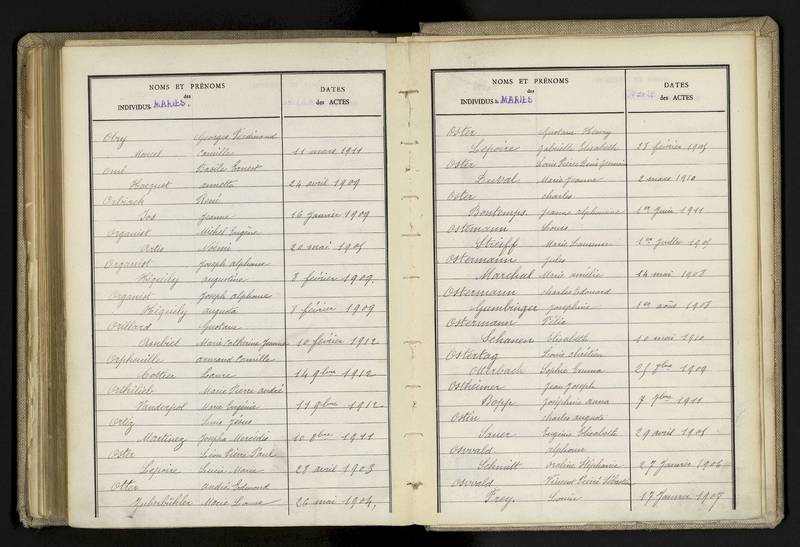 NOMS ET PRÉNOMS
des
INDIVIDUS MARIÉS.
DATES
des ACTES
Olry Georges Ferdinand
Camille 11 mars 1911
Omé Basile Ernest
Hacquet annette 24 avril 1909
René
Jos Jeanne 16 Janvier 1909
Organist Michel Eugène
Noémie 20 mai 1905
Organist Joseph alphonse
Héquily augustine 8 février 1909.
Organist Joseph alphonse
Héquily augusta 8 février 1909
Orillard Gustave
Marie Catherine Jeanne 10 février 1912
Orphouille armand Camille
Laure 14 9bre 1912
Marie Pierre andré
Vanderpol Marie Eugénie 11 9bre 1912.
Ortiz
Martinez Josepha Mercédès 10 8bre 1911
Oster Léon Pierre Paul
Lepoire Lucie Marie 28 avril 1903
Otter André Edmond
Zuberbühler Marie Louise 26 mai 1904,
NOMS ET PRÉNOMS
des
INDIVIDUS MARIÉS
DATES
des ACTES
Oster Gustave Henry
Lepoire Gabrielle Elisabeth 28 février 1905
Oster Louis Pierre René Germain
Duval Marie Jeanne 2 mars 1910
Oster Charles
Bontemps Jeanne alphonsine 1er Juin 1911
Ostermann Louis
Streiff Marie Laurence 1er Juillet 1905
Ostermann Jules
Marchal Marie amélie 14 mai 1908
Ostermann Charles Edouard
Gumbinger Joséphine 1er août 1908
Ostermann
Schanen Elisabeth 10 mai 1910
Ostertag Louis chrétien
Otterbach Sophie Emma 25 7bre 1909
Ostheimer Jean Joseph
Bopp Joséphine anna 7 9bre 1911
Ostin charles auguste
Sauer Eugénie Elisabeth 29 avril 1905
Oswald alphonse
Schmitt Stéphanie 27 Janvier 1906
Oswald Vincent Pierre Sébastien
Frey Louise 17 Janvier 1907